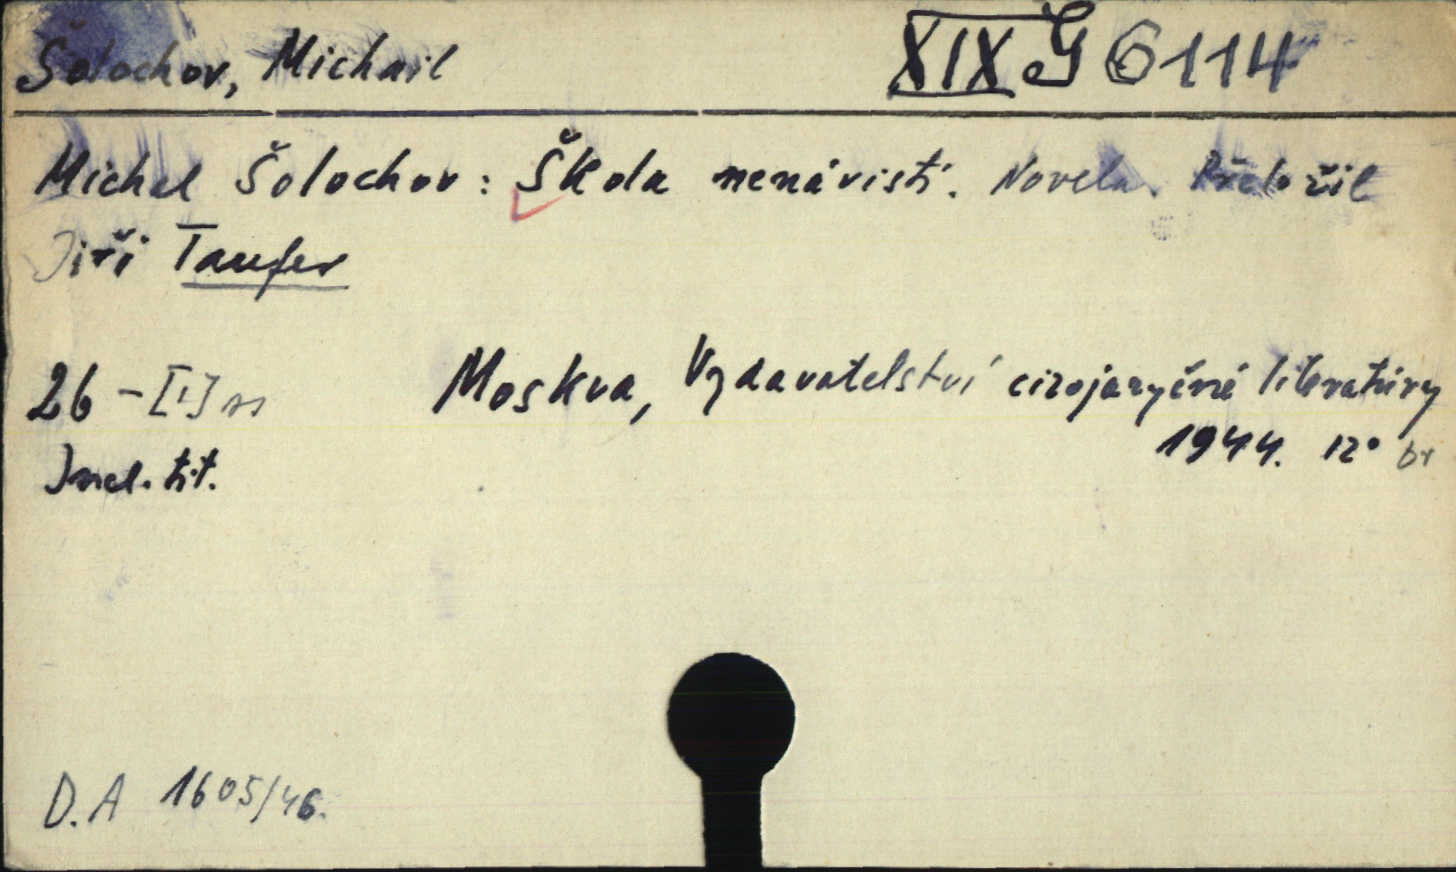 Šolochov, Michail XIX G 6114
Michel Šolochov: Škola nenávisti. Novela. Přeložil
Jiří Taufer
26-[1] ss Moskva, Vydavatelství cizojazyčné literatúry
1944. 12° br
Incl. tit.
D.A 1605/46.